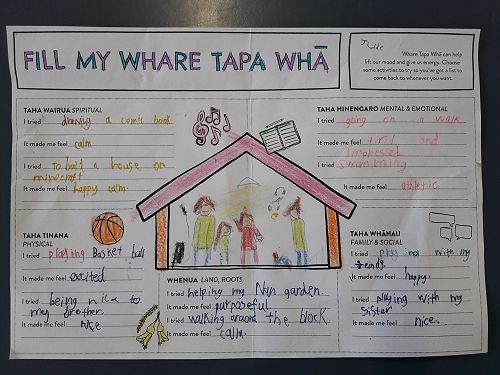 FILL MY WHARE TAPA WHĀ
Whare Tapa Whā can help
lift our mood and give us energy. Choose
some activities to try so you've got a list to
come back to whenever you want.
TAHA WAIRUA SPIRITUAL
I tried drawing a comic book
It made me feel calm
I tried to build a house on
minecraft
It made me feel happy calm.
TAHA HINENGARO MENTAL & EMOTIONAL
I tried going on a walk
It made me feel tired and
impressed
I tried swimming
It made me feel athletic
TAHA TINANA
PHYSICAL
I tried playing Basket ball
It made me feel excited
I tried being nice to
my brother.
It made me feel nice
WHENUA LAND, ROOTS
I tried helping my Nan garden
It made me feel purposeful
I tried walking around the block
It made me feel calm.
TAHA WHĀNAU
FAMILY & SOCIAL
I tried with my
It made me feel happy.
I tried playing with my
sister
It made me feel nice.